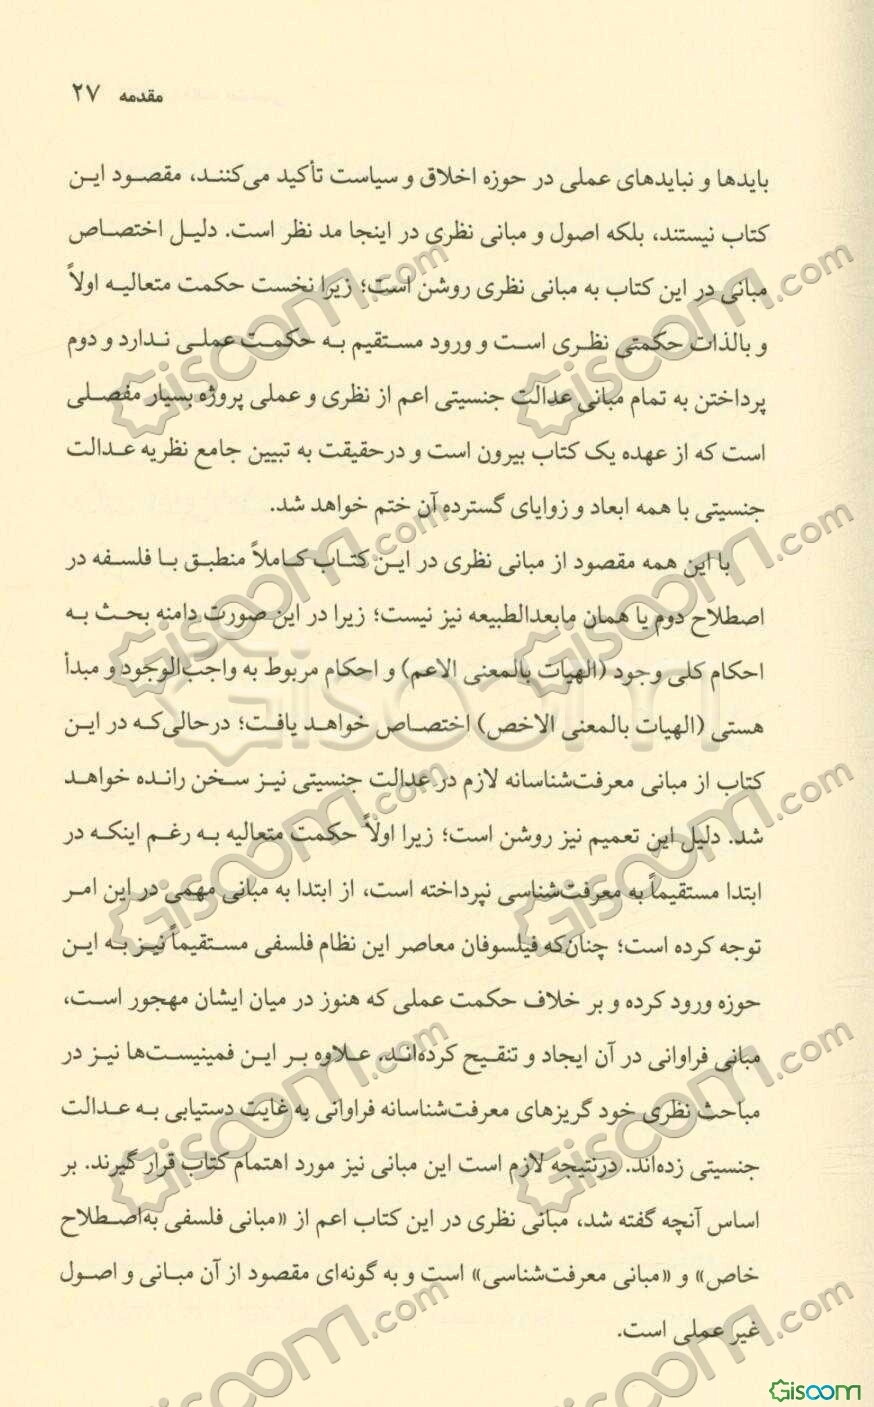 مقدمه ۲۷
بایدها و نبایدهای عملی در حوزه اخلاق و سیاست تأکید می‌کنند، مقصود این
کتاب نیستند، بلکه اصول و مبانی نظری در اینجا مد نظر است. دلیل اختصاص
مبانی در این کتاب به مبانی نظری روشن است؛ زیرا نخست حکمت متعالیه اولاً
و بالذات حکمتی نظری است و ورود مستقیم به حکمت عملی ندارد و دوم
پرداختن به تمام مبانی عدالت جنسیتی اعم از نظری و عملی پروژه بسیار مفصلی
است که از عهده یک کتاب بیرون است و درحقیقت به تبیین جامع نظریه عدالت
جنسیتی با همه ابعاد و زوایای گسترده آن ختم خواهد شد.
با این همه مقصود از مبانی نظری در این کتاب کاملاً منطبق با فلسفه در
اصطلاح دوم یا همان مابعدالطبیعه نیز نیست؛ زیرا در این صورت دامنه بحث به
احکام کلی وجود (الهیات بالمعنی الاعم) و احکام مربوط به واجب‌الوجود و مبدأ
هستی (الهیات بالمعنی الاخص) اختصاص خواهد یافت؛ درحالی‌که در این
کتاب از مبانی معرفت‌شناسانه لازم در عدالت جنسیتی نیز سخن رانده خواهد
شد. دلیل این تعمیم نیز روشن است؛ زیرا اولاً حکمت متعالیه به رغم اینکه در
ابتدا مستقیماً به معرفت‌شناسی نپرداخته است، از ابتدا به مبانی مهمی در این امر
توجه کرده است؛ چنان‌که فیلسوفان معاصر این نظام فلسفی مستقیماً نیز به این
حوزه ورود کرده و بر خلاف حکمت عملی که هنوز در میان ایشان مهجور است،
مبانی فراوانی در آن ایجاد و تنقیح کرده‌اند. علاوه بر این فمینیست‌ها نیز در
مباحث نظری خود گریزهای معرفت‌شناسانه فراوانی به غایت دستیابی به عدالت
جنسیتی زده‌اند. درنتیجه لازم است این مبانی نیز مورد اهتمام کتاب قرار گیرند. بر
اساس آنچه گفته شد، مبانی نظری در این کتاب اعم از «مبانی فلسفی به‌اصطلاح
خاص» و «مبانی معرفت‌شناسی» است و به گونه‌ای مقصود از آن مبانی و اصول
غیر عملی است.
Giscom.com
Giscom.com
Giscom.com
Giscom.com
Giscom
Giscom.com
Giscom.com
Giscom.com
Giscom.com
Giscom.com
Giscom.com
Giscom